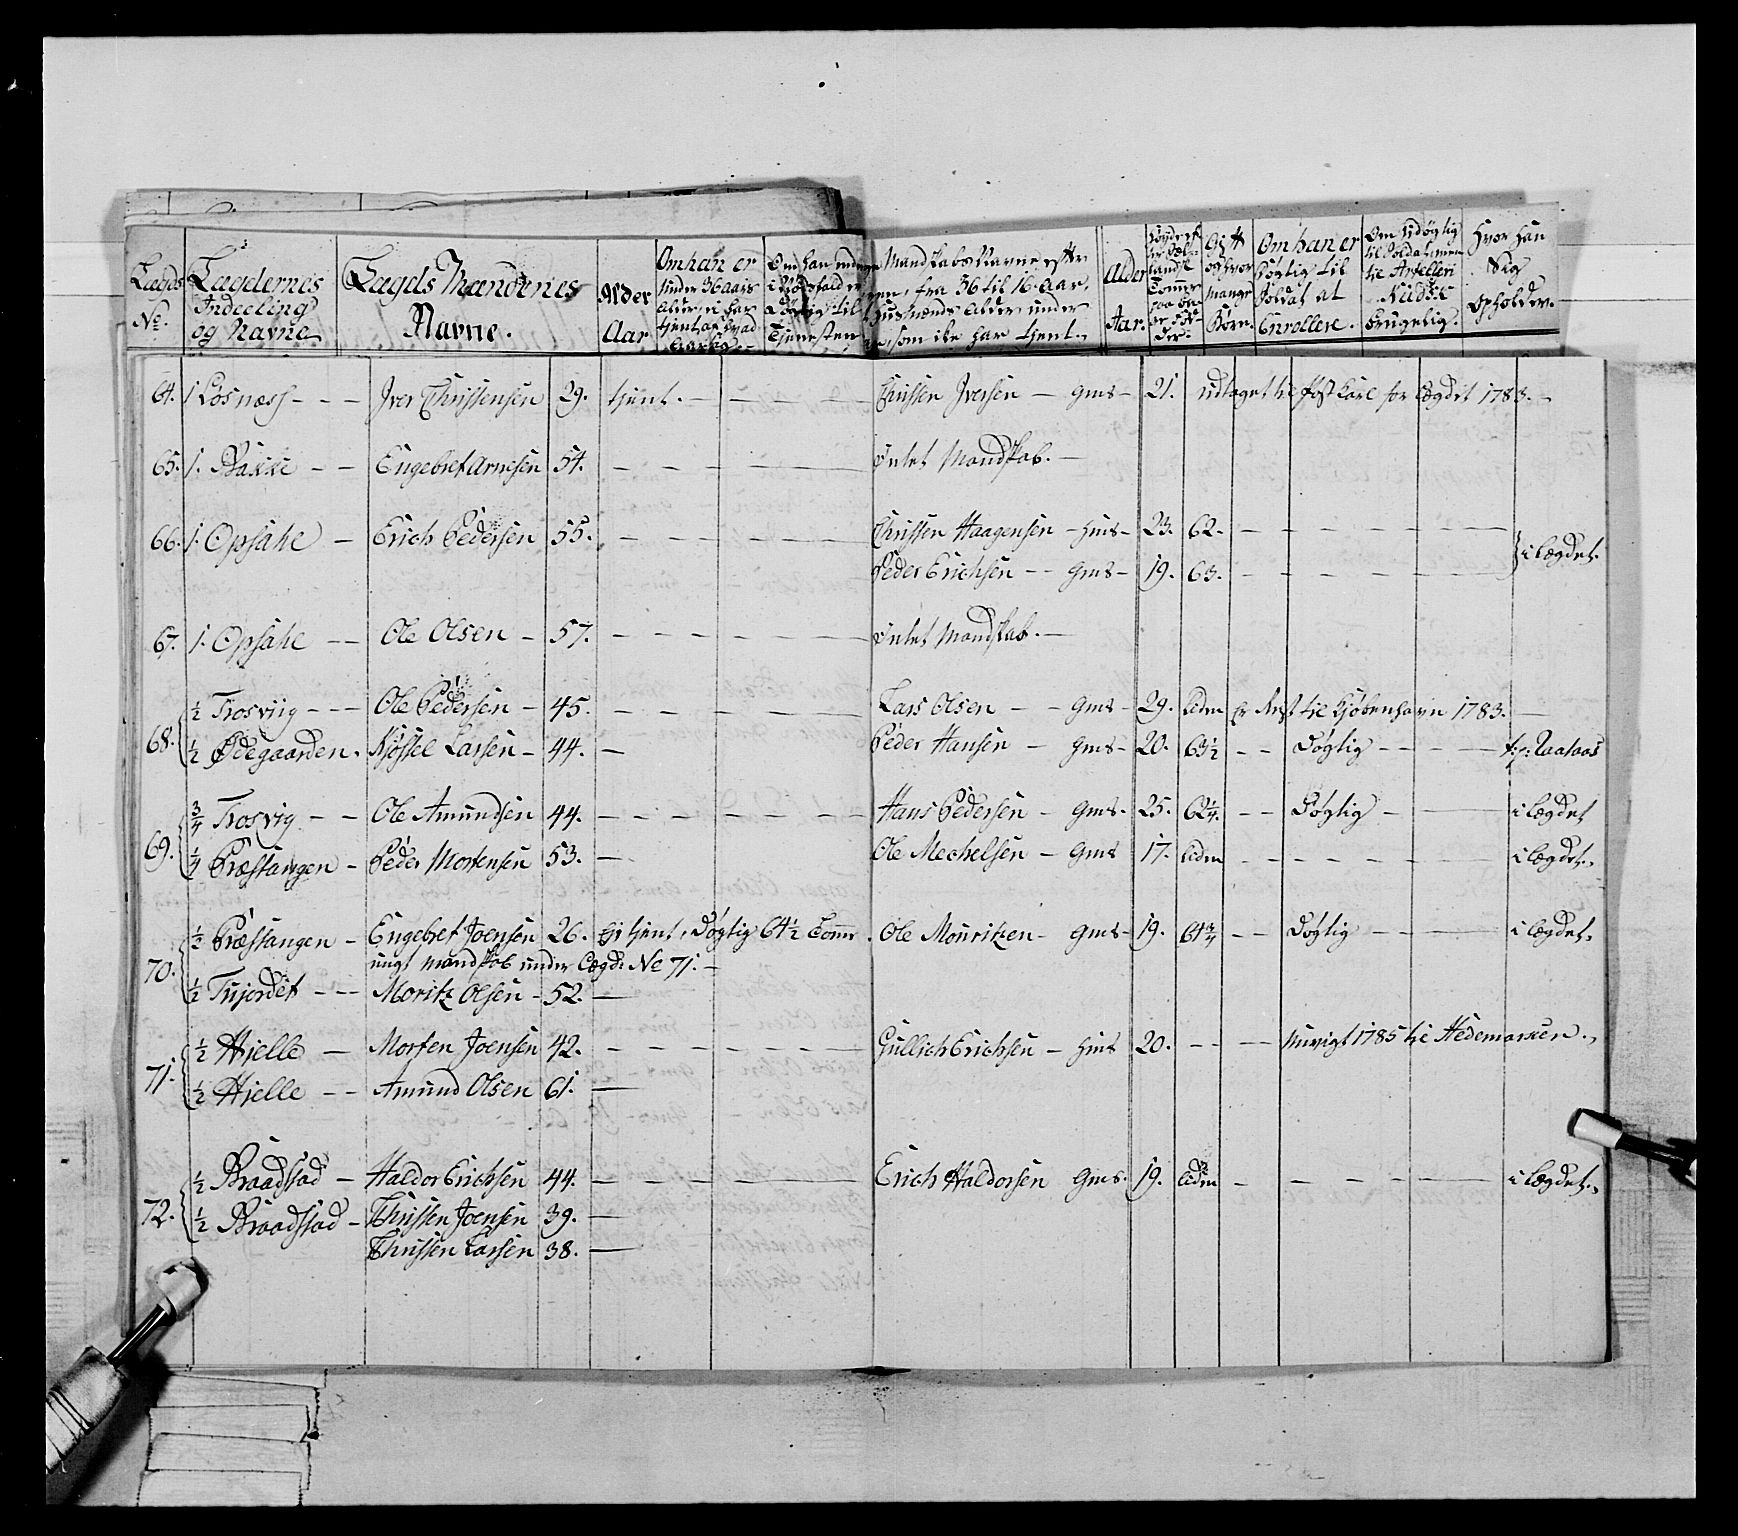 Lægds No.
Lægdernes Indeeling og Navne
Lægds Mændenes Navne.
Alder Aar
Om han er under 36 aars alder, ei har tjent
Om han endnu i Nødsfald er døgtig til Tjenesten
Mandskabs Navne efter fra 36 til 16 Aar, Huusmænds Alder under som ike har tjent.
Alder Aar.
Gift og hvor mange Børn.
Om han er døgtig til Soldat at Enrollere.
Om udøgtig til Soldat, men til Artelleri Kudsk brugelig.
Hvor han Sig opholder.
64. 1 Løsnæss - - - Iver Christensen 29. tjent. - Christen Iversen - gms - 21. udtaget til Post Karl for Lægdet 1783. -
65. 1. Bakke - - Engebret Arnesen 54. - - - - Intet Mandskab. -
66. 1. Opsahl - Erich Pedersen 55. - - - - Christen Haagensen - hms - 23. 62. - - - -
Peder Erichsen - - gms - 19. 63. - - - - } i Lægdet.
67. 1. Opsahl - - Ole Olsen - 57. - - - - Intet Mandskab. -
68. ½ Trosviig - - - Ole Pedersen - 45. - - - - Lars Olsen - - gms - 29. Liden Er Rejst til Kjøbenhavn 1783. -
½ Ødegaarden. Kjøstel Larsen - 44. - Peder Hansen - gms - 20. 63½ - - Døgtig - - - - Raataas
69. ¾ Trosvig - - Ole Amundsen 44. - - - - Hans Pedersen - gms - 25. 62¼. - - Døgtig - - i Lægdet
¼ Præstangen - Peder Mortensen 53. - Ole Mechelsen - gms 17. Liden - - - - i Lægdet.
70. ½ Præstangen - Engebret Joensen 26. Ej tjent, Døgtig 64½ Tomr. Ole Mouritzen - gms - 19. 64¾ - - Døgtig - - - i Lægdet.
ungt mandskab under Lægd No 71. -
½ Tujordet - - - Moritz Olsen - 52. -
71. ½ Hielle - Morten Joensen 42. - - - - Gullich Erichsen - hms 20. - - - 1785 til Hedemarken.
½ Hielle - - Amund Olsen 61. -
72. ½ Braadstad - Haldor Erichsen 44. - - - - Erich Haldorsen gms. 19. Liden - - - - i Lægdet.
½ Braadstad - Christen Joensen 39. -
Christen Larsen 38. -